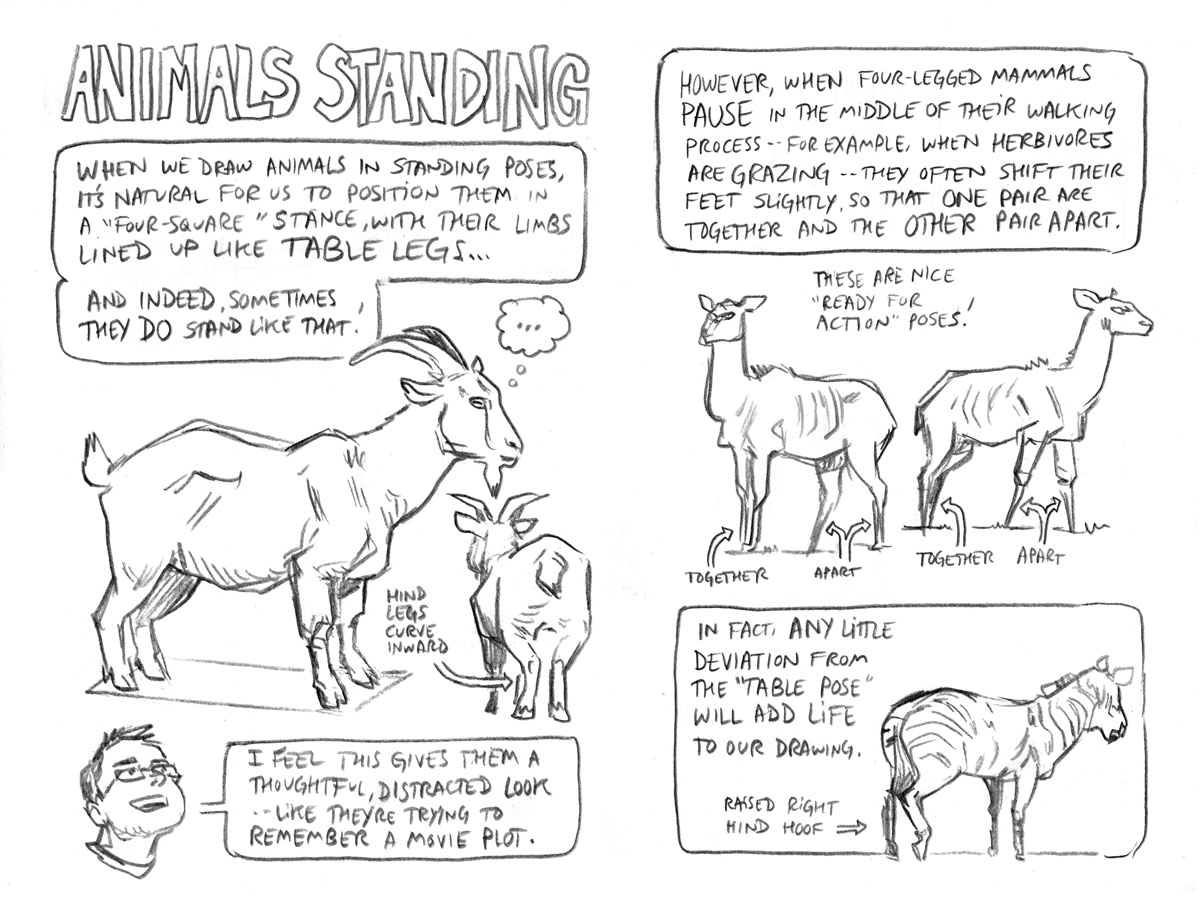 ANIMALS STANDING
WHEN WE DRAW ANIMALS IN STANDING POSES,
IT'S NATURAL FOR US TO POSITION THEM IN
A "FOUR-SQUARE" STANCE, WITH THEIR LIMBS
LINED UP LIKE TABLE LEGS...
AND INDEED, SOMETIMES,
THEY DO STAND LIKE THAT.
...
HIND
LEGS
CURVE
INWARD
I FEEL THIS GIVES THEM A
THOUGHTFUL, DISTRACTED LOOK
--LIKE THEY'RE TRYING TO
REMEMBER A MOVIE PLOT.
HOWEVER, WHEN FOUR-LEGGED MAMMALS
PAUSE IN THE MIDDLE OF THEIR WALKING
PROCESS--FOR EXAMPLE, WHEN HERBIVORES
ARE GRAZING--THEY OFTEN SHIFT THEIR
FEET SLIGHTLY, SO THAT ONE PAIR ARE
TOGETHER AND THE OTHER PAIR APART.
THESE ARE NICE
"READY FOR
ACTION" POSES!
TOGETHER
APART
TOGETHER
APART
IN FACT, ANY LITTLE
DEVIATION FROM
THE "TABLE POSE"
WILL ADD LIFE
TO OUR DRAWING.
RAISED RIGHT
HIND HOOF